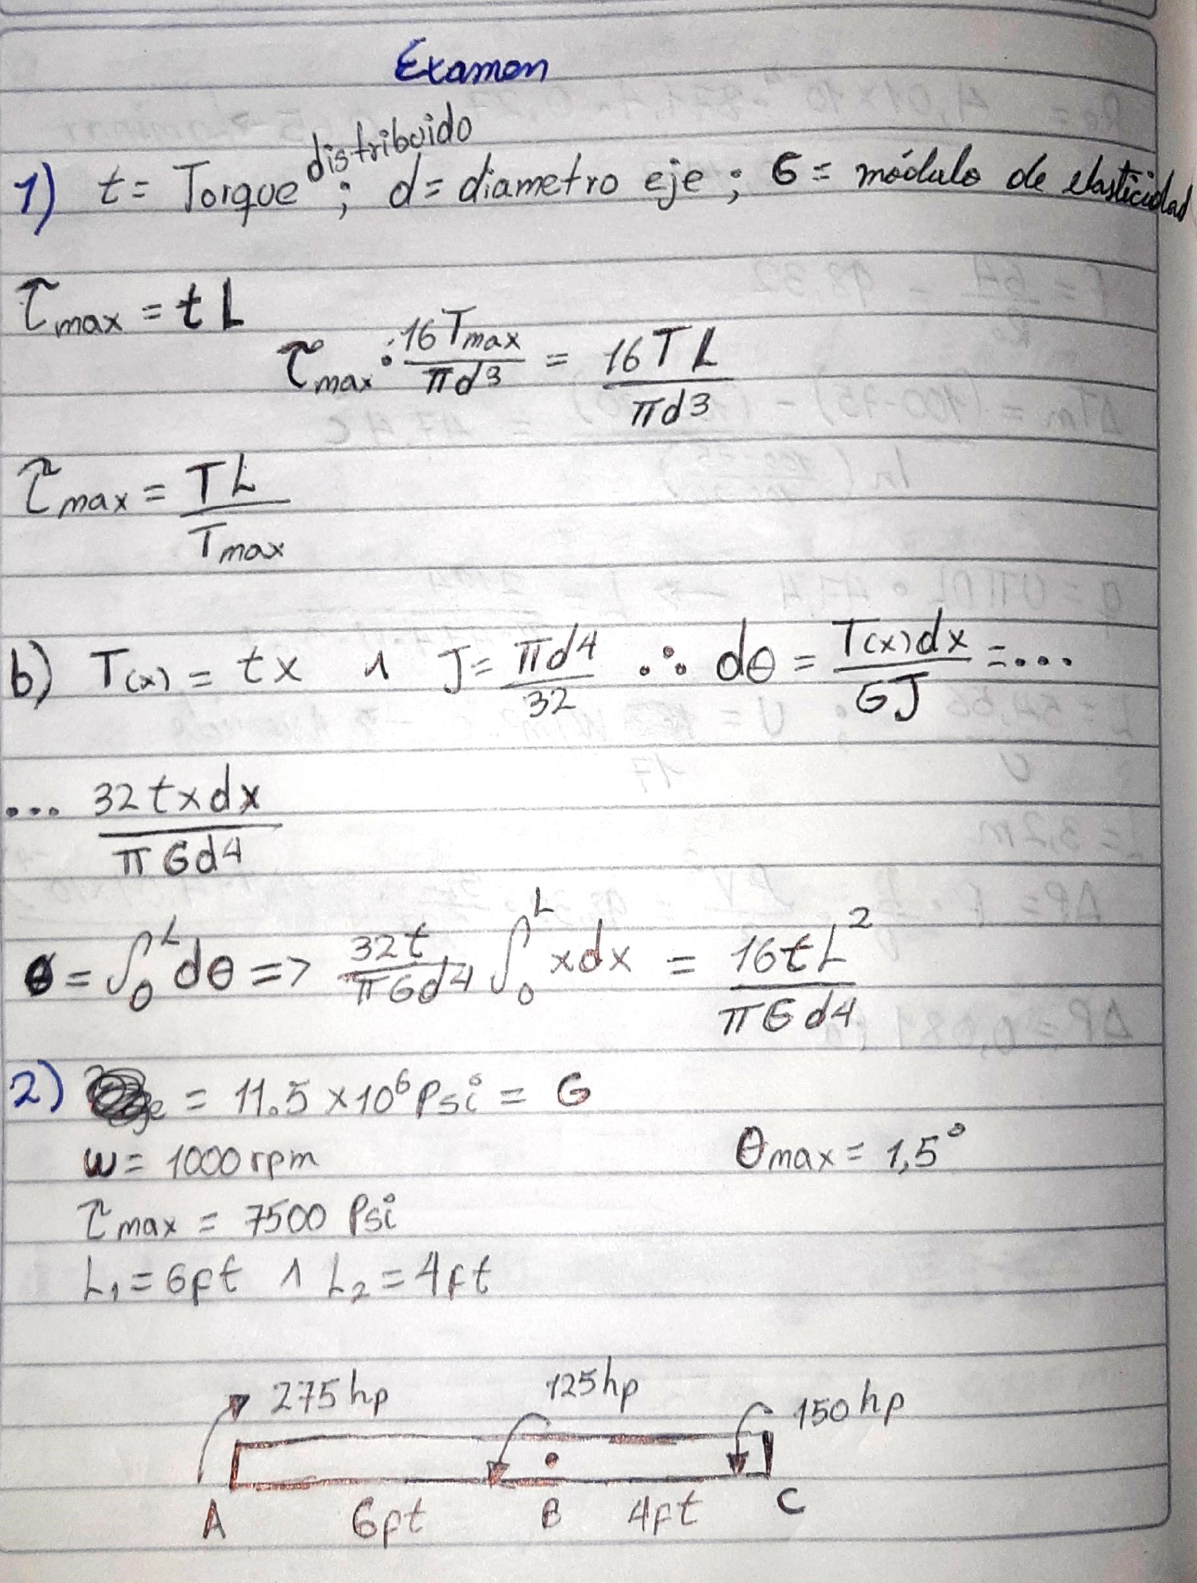 Examen
1) t = Torque distribuido ; d = diametro eje ; G = módulo de elasticidad
τmax = t L
τmax : 16Tmax / πd³ = 16TL / πd³
τmax = TL / Tmax
b) T(x) = tx ∧ J = πd⁴ / 32 ∴ dθ = T(x)dx / GJ = ...
... 32txdx / πGd⁴
θ = ∫₀ᴸ dθ => 32t / πGd⁴ ∫₀ᴸ xdx = 16tL² / πGd⁴
2) = 11.5 x10⁶ Psi = G
ω = 1000 rpm θmax = 1,5°
τmax = 7500 Psi
L₁ = 6ft ∧ L₂ = 4ft
275hp 125hp 150hp
A 6ft B 4ft C